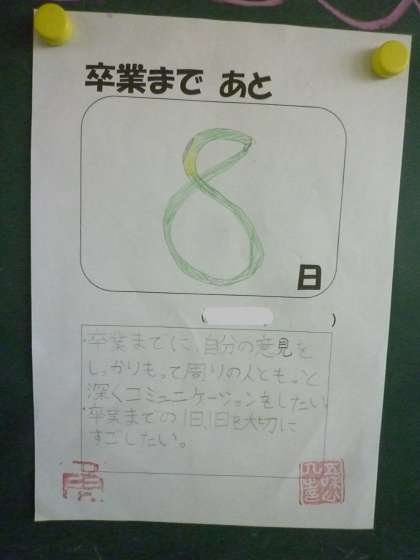 卒業まで あと
8
日
( )
・卒業までに、自分の意見を
しっかりもって周りの人ともっと
深くコミュニケーションをしたい
・卒業までの1日、1日を大切に
すごしたい。